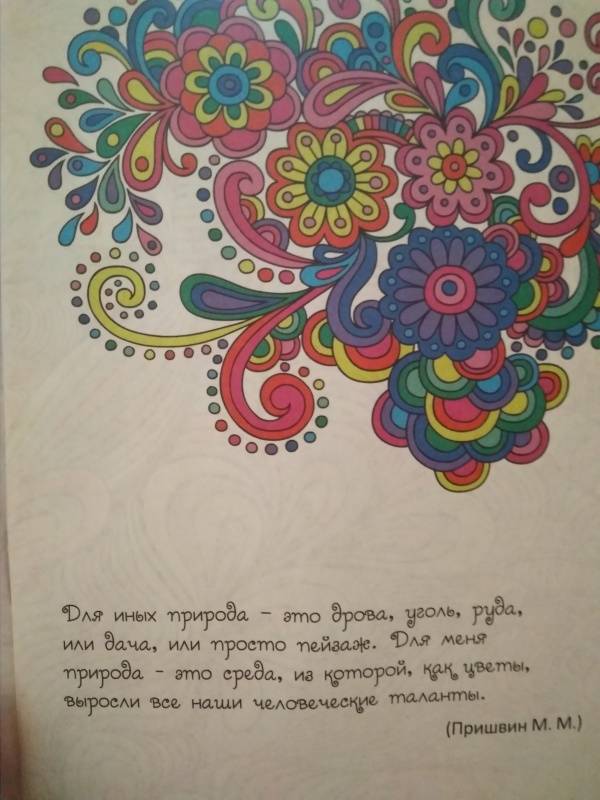 Для иных природа – это дрова, уголь, руда,
или дача, или просто пейзаж. Для меня
природа – это среда, из которой, как цветы,
выросли все наши человеческие таланты.
(Пришвин М. М.)